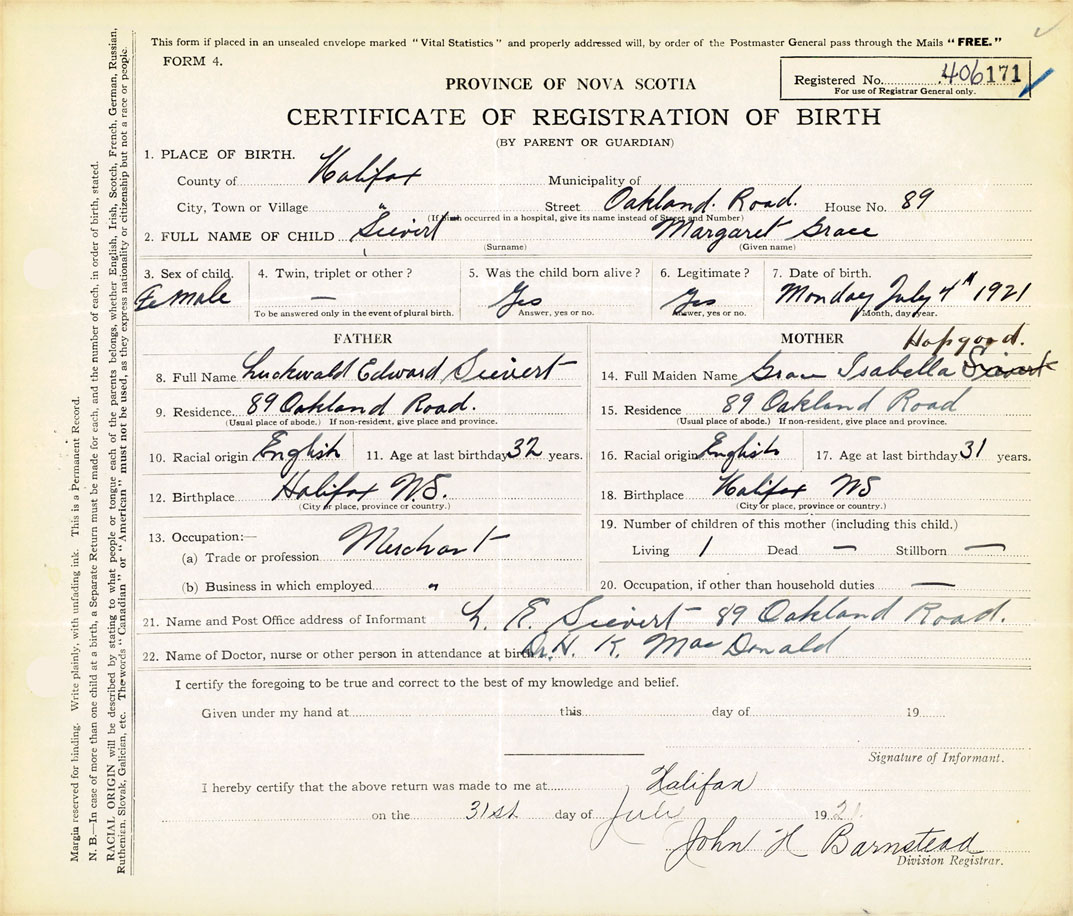 This form if placed in an unsealed envelope marked "Vital Statistics" and properly addressed will, by order of the Postmaster General pass through the Mails "FREE."
FORM 4.
Registered No. 406171
For use of Registrar General only.
PROVINCE OF NOVA SCOTIA
CERTIFICATE OF REGISTRATION OF BIRTH
(BY PARENT OR GUARDIAN)
1. PLACE OF BIRTH.
County of Halifax Municipality of
City, Town or Village " Street Oakland Road. House No. 89
(If birth occurred in a hospital, give its name instead of Street and Number)
2. FULL NAME OF CHILD Sievert Margaret Grace
(Surname) (Given name)
3. Sex of child. 4. Twin, triplet or other? 5. Was the child born alive? 6. Legitimate? 7. Date of birth.
Female — Yes Yes Monday July 4th 1921
To be answered only in the event of plural birth. Answer, yes or no. Answer, yes or no. Month, day year.
FATHER
8. Full Name Luckwald Edward Sievert
9. Residence 89 Oakland Road.
(Usual place of abode.) If non-resident, give place and province.
10. Racial origin English 11. Age at last birthday 32 years.
12. Birthplace Halifax NS.
(City or place, province or country.)
13. Occupation:—
(a) Trade or profession Merchant
(b) Business in which employed "
MOTHER Hopgood.
14. Full Maiden Name Grace Isabella Sievert
15. Residence 89 Oakland Road
(Usual place of abode.) If non-resident, give place and province.
16. Racial origin English 17. Age at last birthday 31 years.
18. Birthplace Halifax NS
(City or place, province or country.)
19. Number of children of this mother (including this child.)
Living 1 Dead — Stillborn —
20. Occupation, if other than household duties —
21. Name and Post Office address of Informant L. E. Sievert - 89 Oakland Road.
22. Name of Doctor, nurse or other person in attendance at birth Dr. H. K. MacDonald
I certify the foregoing to be true and correct to the best of my knowledge and belief.
Given under my hand at this day of 19
Signature of Informant.
I hereby certify that the above return was made to me at Halifax
on the 31st day of July 1921
John H Barnstead
Division Registrar.
Margin reserved for binding. Write plainly, with unfading ink. This is a Permanent Record.
N. B.—In case of more than one child at a birth, a Separate Return must be made for each, and the number of each, in order of birth, stated.
RACIAL ORIGIN will be described by stating to what people or tongue each of the parents belongs, whether English, Irish, Scotch, French, German, Russian,
Ruthenian, Slovak, Galician, etc. The words "Canadian" or "American" must not be used, as they express nationality or citizenship but not a race or people.